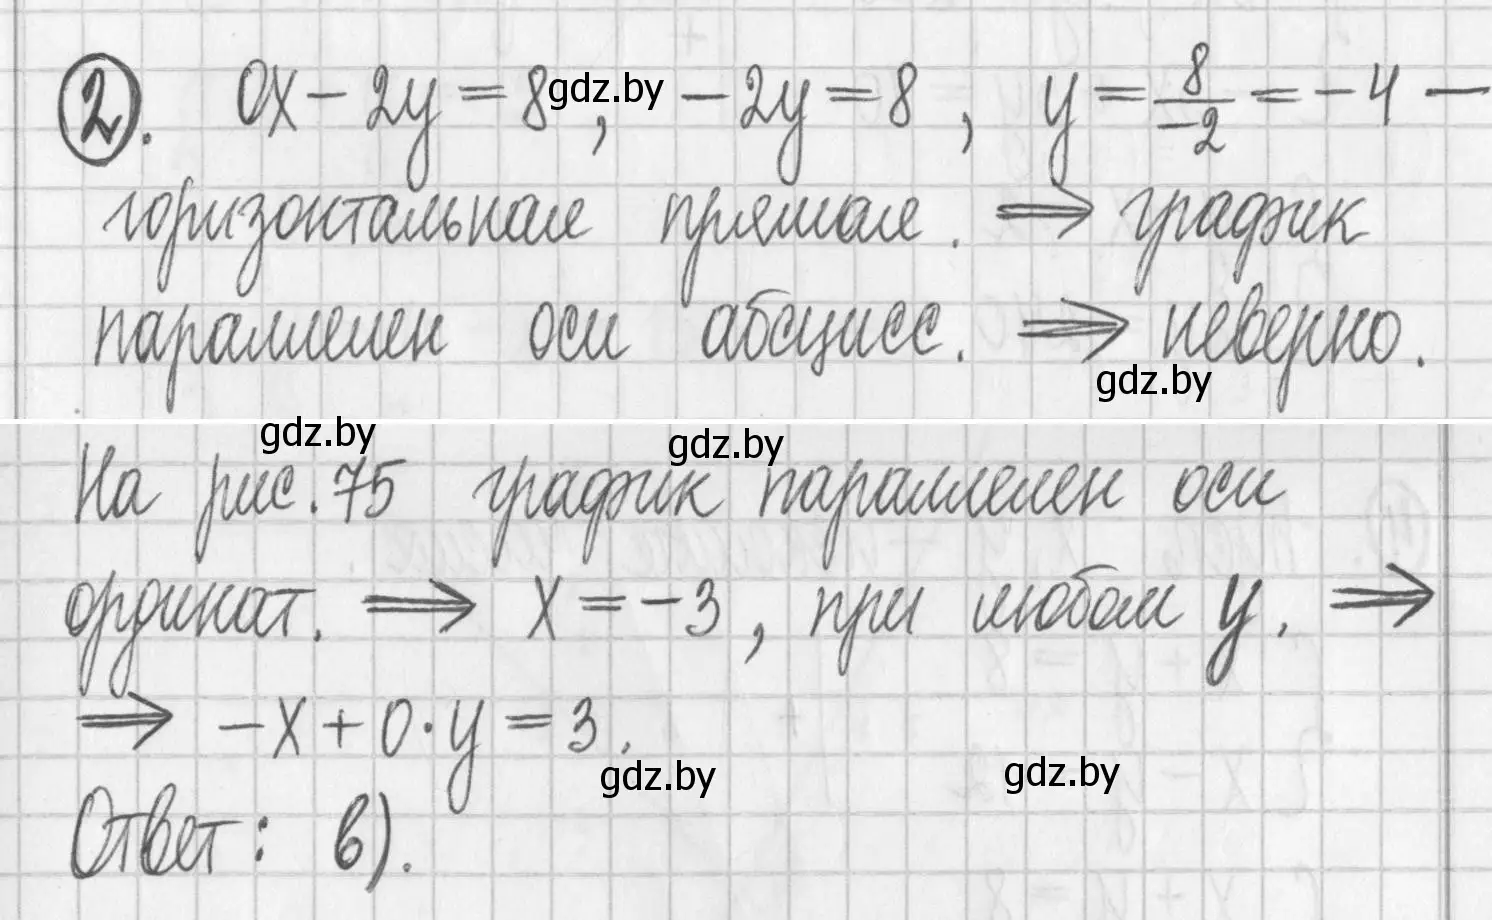 2. 0x - 2y = 8, -2y = 8, y = 8/-2 = -4 —
gdz.by
горизонтальная прямая. ⇒ график
параллелен оси абсцисс. ⇒ неверно.
gdz.by
gdz.by
gdz.by
На рис. 75 график параллелен оси
ординат. ⇒ x = -3, при любом y. ⇒
⇒ -x + 0·y = 3.
gdz.by
gdz.by
Ответ: в).